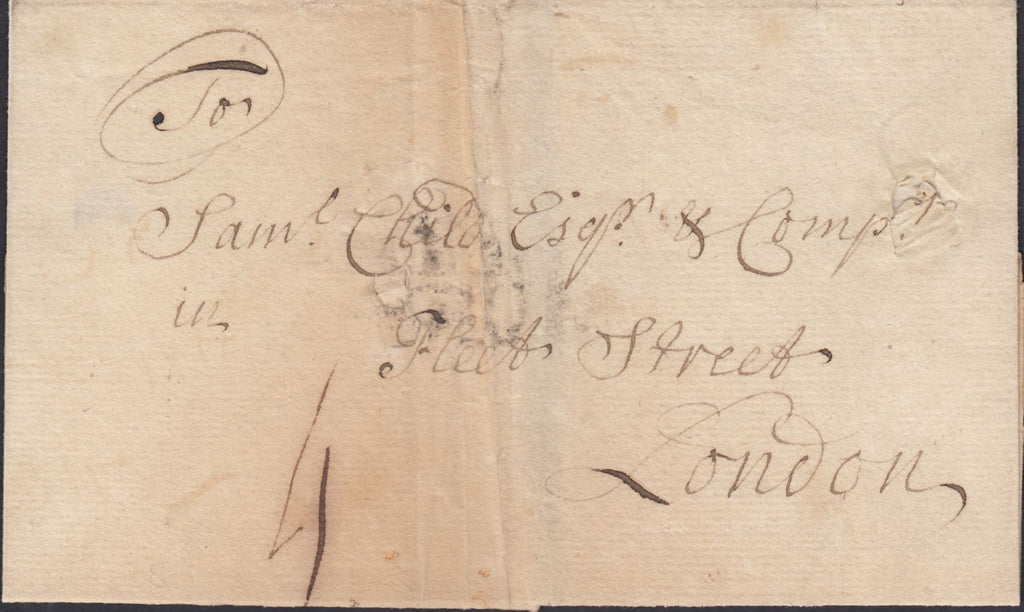 To
Saml. Child Esqr. & Compa.
in
Fleet Street
London
4